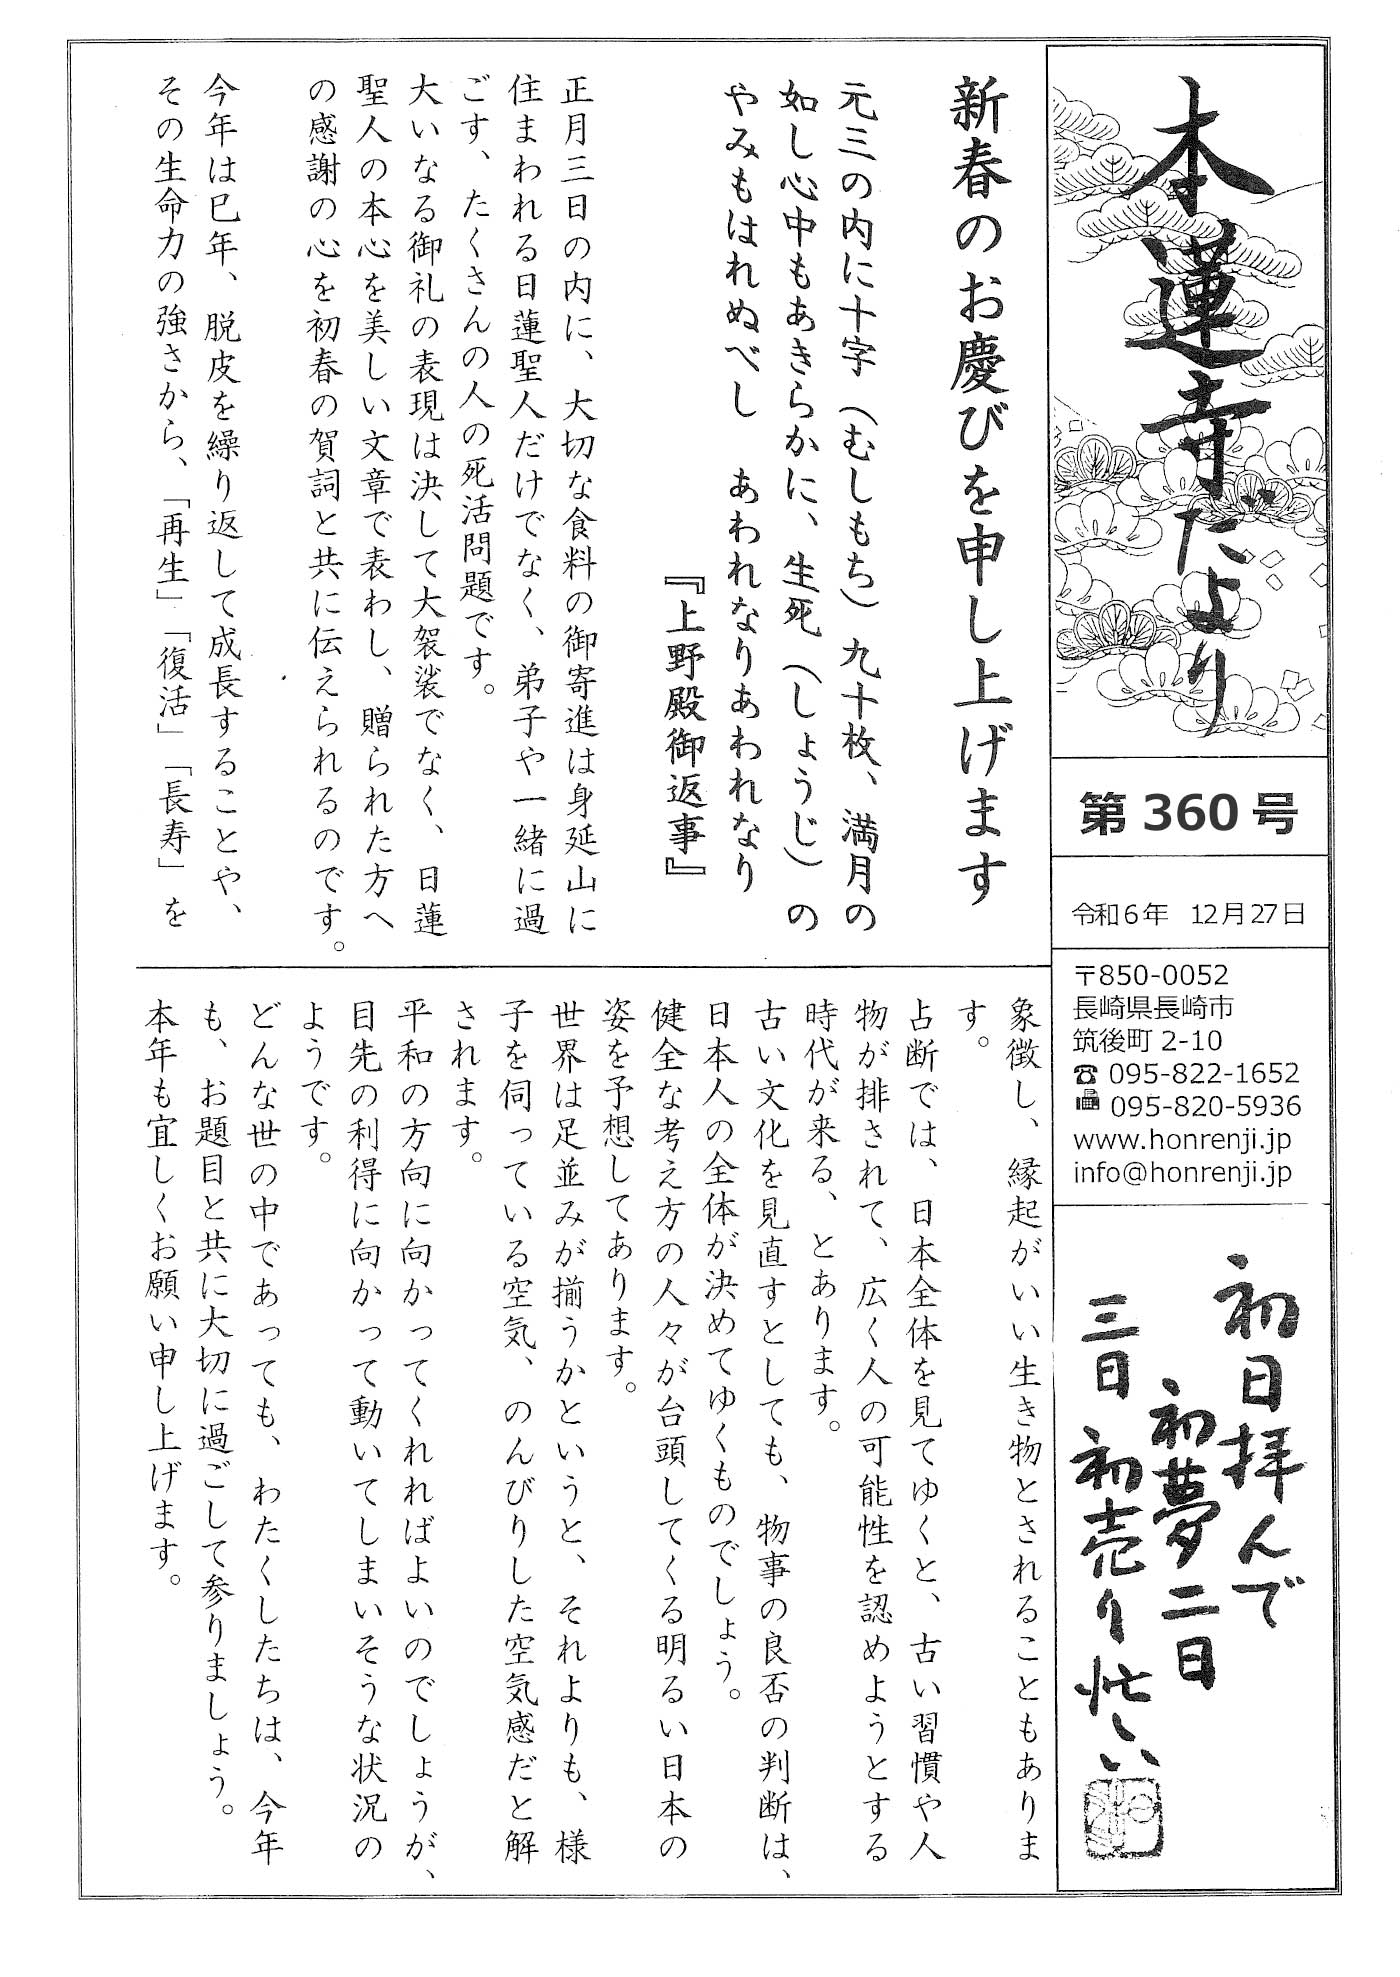 本蓮寺だより
第360号
令和6年 12月27日
〒850-0052
長崎県長崎市
筑後町 2-10
☎ 095-822-1652
095-820-5936
www.honrenji.jp
info@honrenji.jp
初日拝んで
初夢二日
三日初売り忙しい
新春のお慶びを申し上げます
元三の内に十字（むしもち）九十枚、満月の
如し心中もあきらかに、生死（しょうじ）の
やみもはれぬべし　あわれなりあわれなり
『上野殿御返事』
正月三日の内に、大切な食料の御寄進は身延山に
住まわれる日蓮聖人だけでなく、弟子や一緒に過
ごす、たくさんの人の死活問題です。
大いなる御礼の表現は決して大袈裟でなく、日蓮
聖人の本心を美しい文章で表わし、贈られた方へ
の感謝の心を初春の賀詞と共に伝えられるのです。
今年は巳年、脱皮を繰り返して成長することや、
その生命力の強さから、「再生」「復活」「長寿」を
象徴し、縁起がいい生き物とされることもありま
す。
占断では、日本全体を見てゆくと、古い習慣や人
物が排されて、広く人の可能性を認めようとする
時代が来る、とあります。
古い文化を見直すとしても、物事の良否の判断は、
日本人の全体が決めてゆくものでしょう。
健全な考え方の人々が台頭してくる明るい日本の
姿を予想してあります。
世界は足並みが揃うかというと、それよりも、様
子を伺っている空気、のんびりした空気感だと解
されます。
平和の方向に向かってくれればよいのでしょうが、
目先の利得に向かって動いてしまいそうな状況の
ようです。
どんな世の中であっても、わたくしたちは、今年
も、お題目と共に大切に過ごして参りましょう。
本年も宜しくお願い申し上げます。